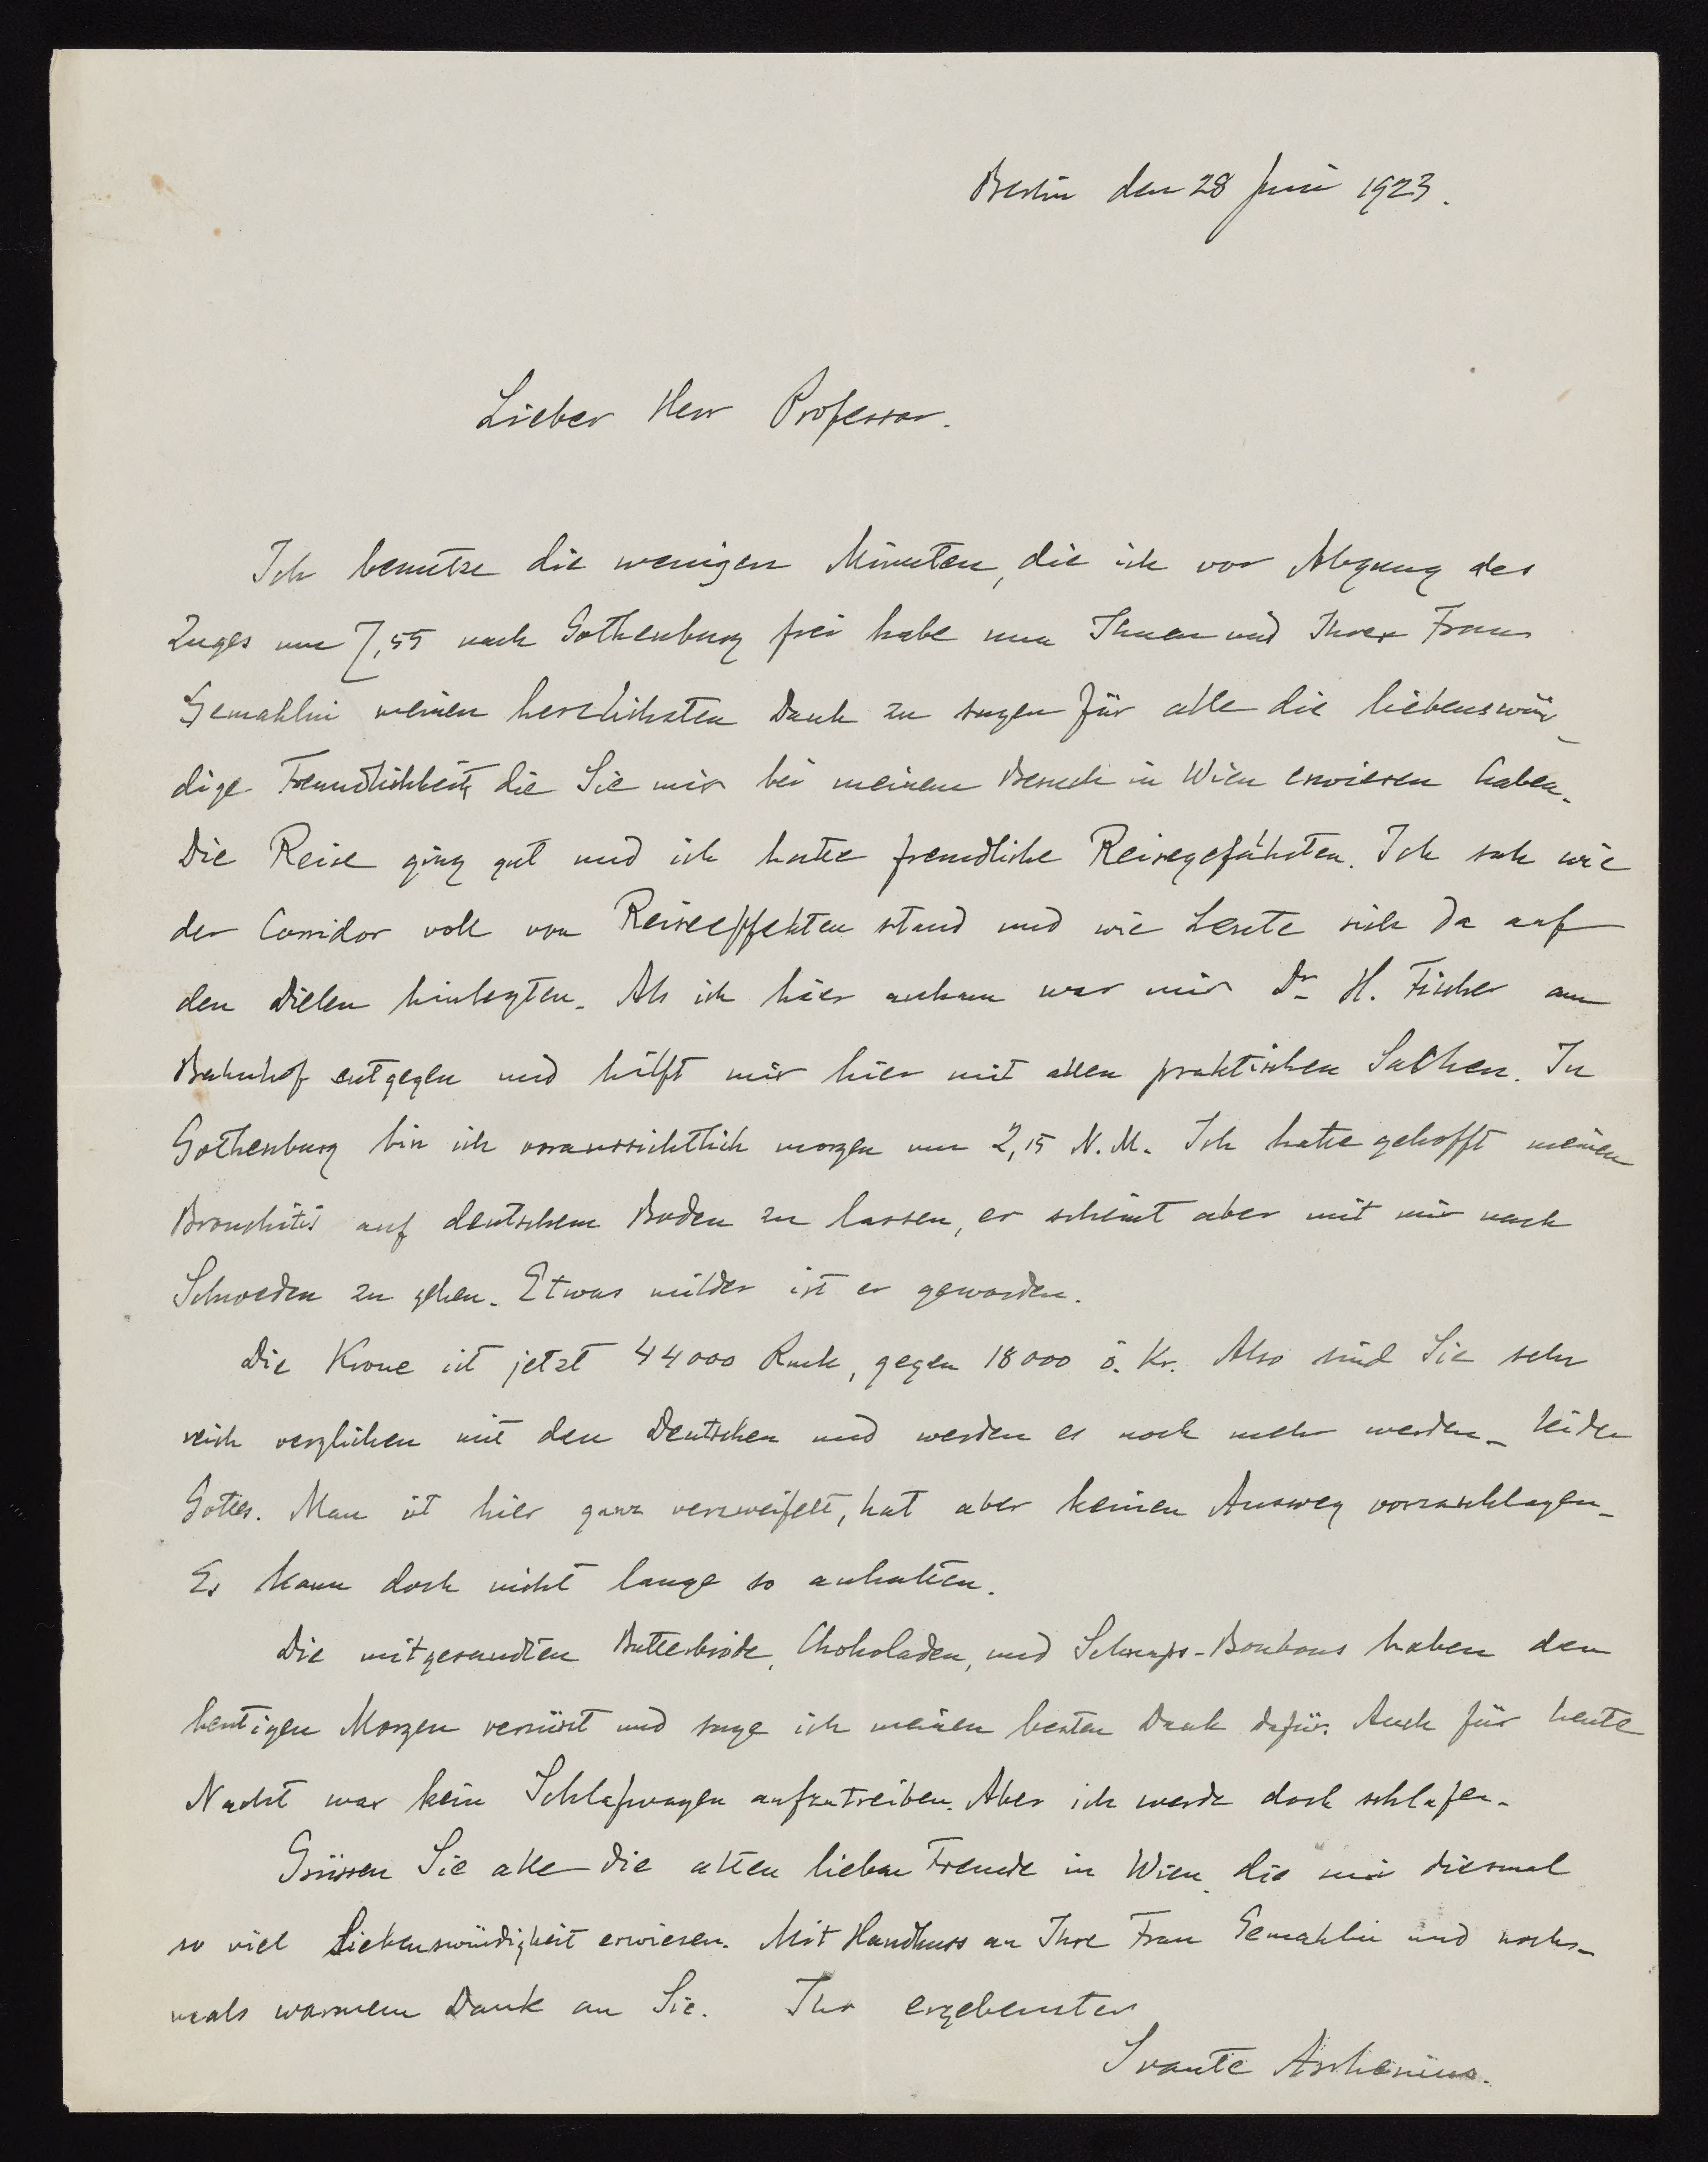 Berlin den 28 Juni 1923.
Lieber Herr Professor.
Ich benutze die wenigen Minuten, die ich vor Abgang des
Zuges um 7,55 nach Gothenburg frei habe um Ihnen und Ihrer Frau
Gemahlin meinen herzlichsten Dank zu sagen für alle die liebenswür-
dige Freundlichkeit, die Sie mir bei meinem Besuch in Wien erwiesen haben.
Die Reise ging gut und ich hatte freundliche Reisegefährten. Ich sah wie
der Corridor voll von Reiseeffekten stand und wie Leute sich da auf
den Dielen hinlegten. Als ich hier ankam war mir Dr H. Fischer am
Bahnhof entgegen und hilft mir hier mit allen praktischen Sachen. In
Gothenburg bin ich voraussichtlich morgen um 2,15 N.M. Ich hatte gehofft meinen
Bronchitis auf deutschem Boden zu lassen, er scheint aber mit mir nach
Schweden zu gehen. Etwas milder ist er geworden.
Die Krone ist jetzt 44000 Rmk, gegen 18000 ö. Kr. Also sind Sie sehr
reich verglichen mit den Deutschen und werden es noch mehr werden. Leider
Gottes. Man ist hier ganz verzweifelt, hat aber keinen Ausweg vorzuschlagen.
Es kann doch nicht lange so anhalten.
Die mitgesandten Butterbrode, Chokoladen, und Schnaps-Bonbons haben den
heutigen Morgen versüsst und sage ich meinen besten Dank dafür. Auch für heute
Nacht war kein Schlafwagen aufzutreiben. Aber ich werde doch schlafen.
Grüssen Sie alle die alten lieben Freunde in Wien, die mir diesmal
so viel Liebenswürdigkeit erwiesen. Mit Handkuss an Ihre Frau Gemahlin und noch-
mals warmem Dank an Sie. Ihr ergebenster
Svante Arrhenius.